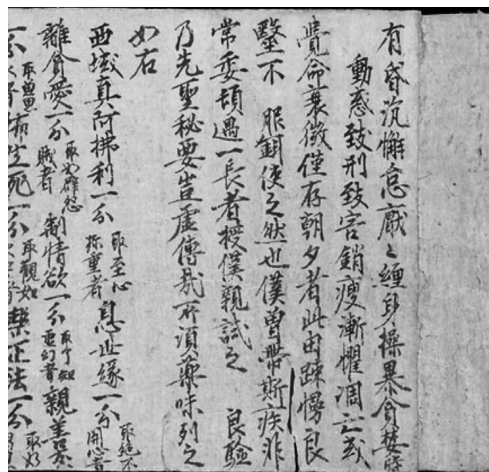 有昏沉懈怠厭之纏身操暴貪婪
動惑致刑致害銷瘦漸懼凋亡或
覺命衰微僅存朝夕者此由疎慢良
醫不 服餌使之然也僕曾帶斯疾非
常委頓遇一長者授僕親試之 良驗
乃先聖秘要豈虛傳哉所須藥味列之
如右
西域真阿拂利一分 取至心 殊重者 息世緣一分 取絕不 開心者
離貪愛一分 取如辟怨 賊者 割情欲一分 取了知 幻者 親善
生死一分 取觀如 禁正法一分